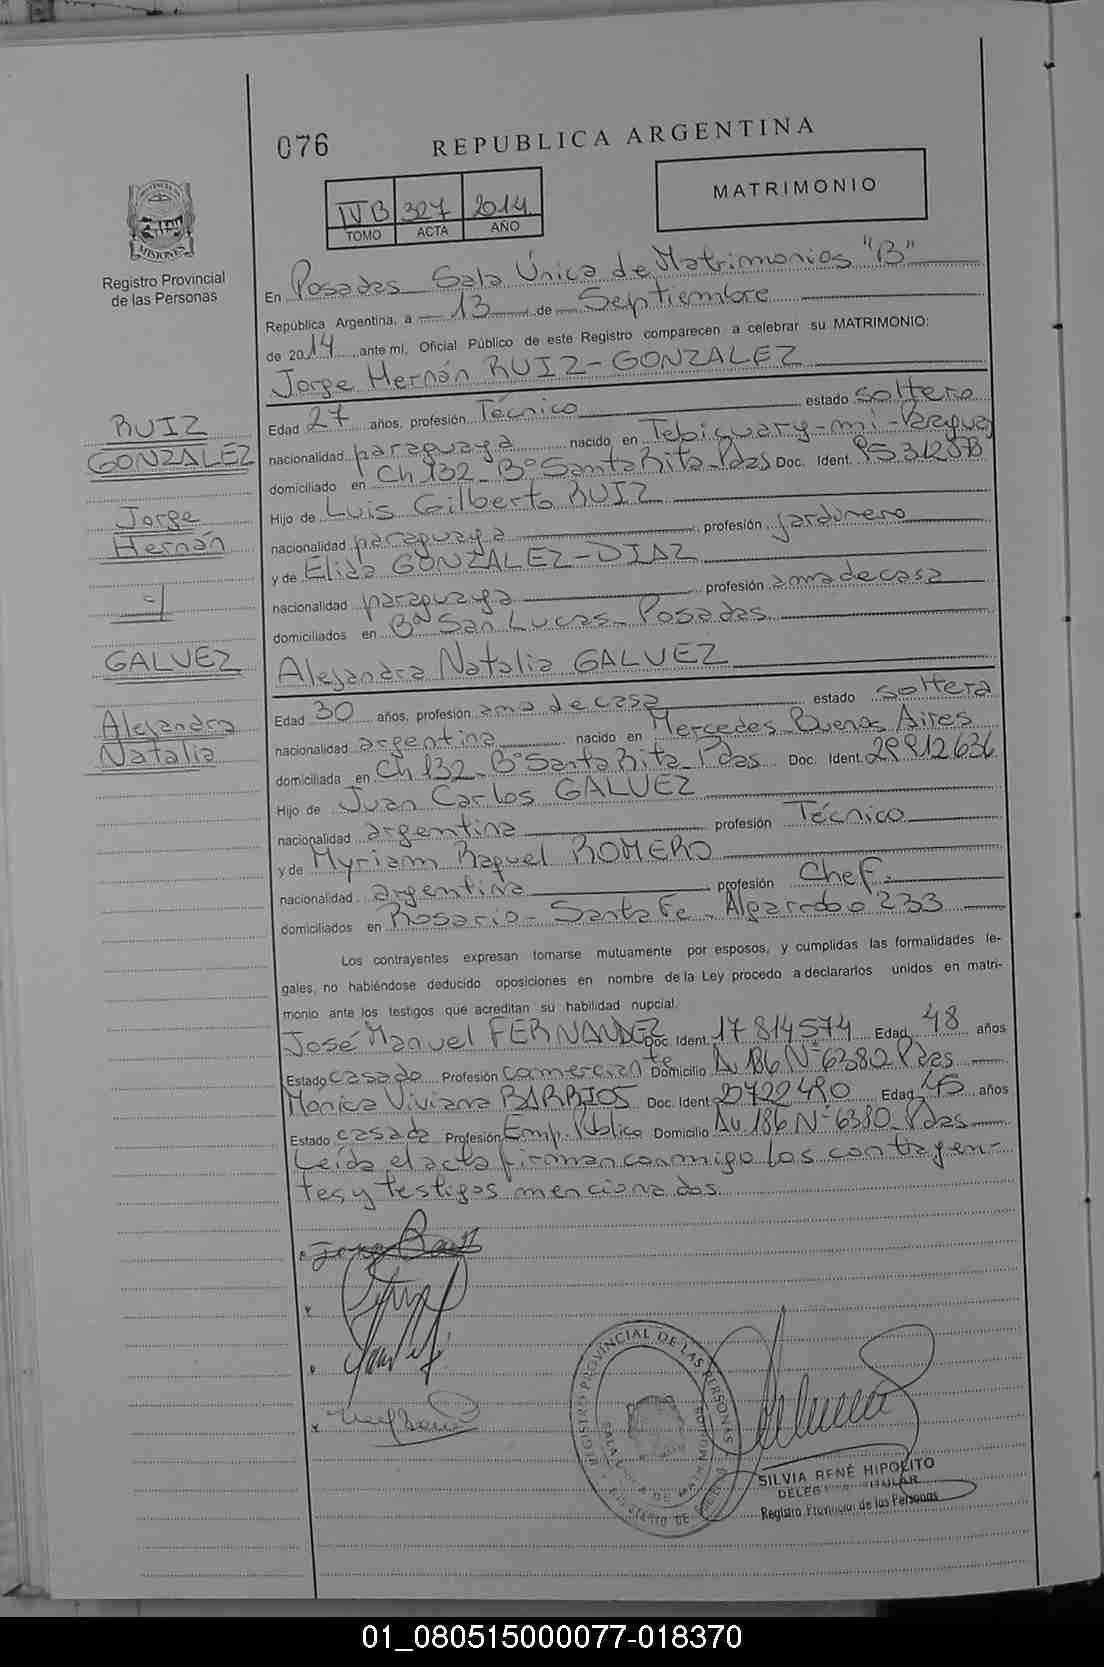 076
REPUBLICA ARGENTINA
MATRIMONIO
IV B 327 2014
TOMO ACTA AÑO
PROVINCIA DE
MISIONES
Registro Provincial
de las Personas
En Posadas Sala Única de Matrimonios "B"
República Argentina, a 13 de Septiembre
de 2014 ante mí, Oficial Público de este Registro comparecen a celebrar su MATRIMONIO:
Jorge Hernán RUIZ-GONZALEZ
RUIZ
GONZALEZ
Jorge
Hernán
GALVEZ
Alejandra
Natalia
Edad 27 años, profesión Técnico estado soltero
nacionalidad paraguaya nacido en Tebicuary-mi-
domiciliado en Ch 132 - B° Santa Rita - Pdas Doc. Ident.
Hijo de Luis Gilberto RUIZ
nacionalidad paraguaya profesión jardinero
y de Elida GONZALEZ-DIAZ
nacionalidad paraguaya profesión ama de casa
domiciliados en B° San Lucas - Posadas
Alejandra Natalia GALVEZ
Edad 30 años, profesión ama de casa estado soltera
nacionalidad argentina nacido en Mercedes - Buenos Aires
domiciliada en Ch 132 - B° Santa Rita - Pdas Doc. Ident. 29912636
Hijo de Juan Carlos GALVEZ
nacionalidad argentina profesión Técnico
y de Myriam Raquel ROMERO
nacionalidad argentina profesión Chef.
domiciliados en Rosario - Santa Fe - Algarrobo 233
Los contrayentes expresan tomarse mutuamente por esposos, y cumplidas las formalidades le-
gales, no habiéndose deducido oposiciones en nombre de la Ley procedo a declararlos unidos en matri-
monio ante los testigos que acreditan su habilidad nupcial.
José Manuel FERNANDEZ Doc. Ident. 17814574 Edad 48 años
Estado casado Profesión comerciante Domicilio Av 186 N° 6380 Pdas
Monica Viviana BARRIOS Doc. Ident. 20722490 Edad 45 años
Estado casada Profesión Emp. Público Domicilio Av. 186 N° 6380 - Pdas
Leída el acta firman conmigo los contrayen-
tes y testigos mencionados.
REGISTRO PROVINCIAL DE LAS PERSONAS
SILVIA RENÉ HIPOLITO
Registro Provincial de las Personas
01_080515000077-018370